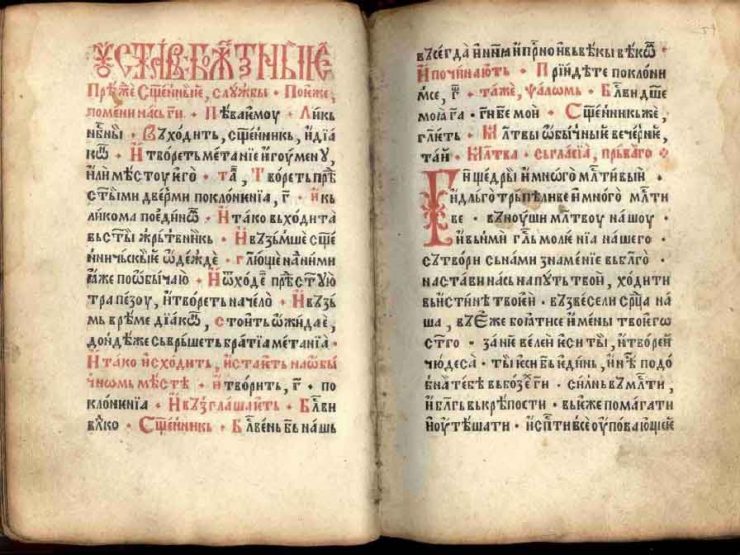 Оуставь бжⷭ҇тьвныѥ
Прѣжⷣе сщ҃енныѥ, слоужбы · Понѥже,
помени насьги · Пѣваимоу · Ликь
Въходить, сщ҃енникь, идїа
кѡⷩ · Итвореть метанїе игоуменоу,
или мѣстоу ѥго · таⷤ, Твореть прⷣѣ
ст҃ыми дверми поклонѥнїа, г҃ · икь
ликома поединѡⷨ · Итако въходита
въст҃ы жрьтвникь · Ивъзьмше сщ҃е
ничьскыѥ ѡдеждѥ · гл҃юще на ними
ꙗже по ѡбычаю · Иѡходеⷮ прⷣѣ ст҃ую
трапезоу, итвореть начело · Ивъзь
мь врѣме дїакѡⷩ, стоить ѡжидаѥ,
дондѣже съврьшеть братїа метанїа ·
Итако исходить, истаѥть на ѡбы
чномь мѣстѣ · и творить, г҃ · по
клонѥнїа · Ивъзглашаѥть · Бл҃ви
влⷣко · Сщ҃енникь · Бл҃вень б҃ь нашь
въсегда инн҃ꙗ ипрⷭ҇но ивьвѣкы вѣкѡⷨ
Ипочинають · Прїидѣте поклони
мсе, г҃ · таже, ѱалѡмь · Бл҃ви дш҃е
моꙗ га · ги бе мои · Сщ҃енникьже,
гл҃ѥть · Мл҃твы ѡбычныѥ вечернїѥ,
таи · Мл҃тва · съгласїа, прьваго ·
Ги щедры и много мл҃тивыи
идльготрьпѣливе имного мл҃ти
ве · въноуши мл҃твоу нашоу ·
ивьнми гл҃ь молѥнїа нашего ·
сътвори сьнами знаменїе вьбл҃го ·
настави нась на путь твои, ходити
вь истинѣ твоѥи · възвесели срⷣца на
ша, въѥже боꙗтисе имены твоѥго
ст҃го · зане велеи еси ты, итвореи
чюдеса · ты ѥси б҃ь ѥдинь, инⷭ҇ѣ подо
бна тебѣ вьбоѕѣⷯ ги · сильнь въмл҃ти,
и бл҃гь вькрѣпости · въѥже помагати
иоутѣшати · исп҃сти всѥ оуповающеѥ